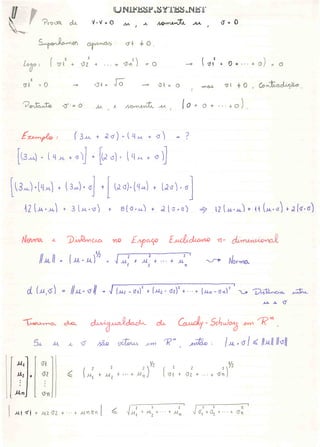 UNIFESP.SYTES.NET
Prova de v·v = 0 se, e somente se, v = 0
Suponhamos apenas: v1 ≠ 0.
Logo: (v1² + v2² + ... + vn²) = 0 → (v1² + 0 + ... + 0) = 0
v1² = 0 → v1 = √0 → v1 = 0, mas v1 ≠ 0, Contradição.
Portanto v = 0 se, e somente se, (0 + 0 + ... + 0).
Exemplo: (3u + 2v) · (4u + v) = ?
[(3u) · (4u + v)] + [(2v) · (4u + v)]
[(3u)·(4u) + (3u)·v] + [(2v)·(4u) + (2v)·v]
12(u·u) + 3(u·v) + 8(v·u) + 2(v·v) ⇒ 12(u·u) + 11(u·v) + 2(v·v)
Norma e Distância no Espaço Euclidiano n-dimensional
||u|| = (u·u)^½ = √(u1² + u2² + ... + un²) → Norma
d(u,v) = ||u - v|| = √((u1 - v1)² + (u2 - v2)² + ... + (un - vn)²) → Distância entre
u e v
Teorema da desigualdade de Cauchy-Schwarz em Rⁿ.
Se u e v são vetores em Rⁿ, então: |u·v| ≤ ||u|| ||v||
[u1 u2 ⋮ un] · [v1 v2 ⋮ vn] ≤ (u1² + u2² + ... + un²)^½ (v1² + v2² + ... + vn²)^½
|u1v1 + u2v2 + ... + unvn| ≤ √(u1² + u2² + ... + un²) √(v1² + v2² + ... + vn²)